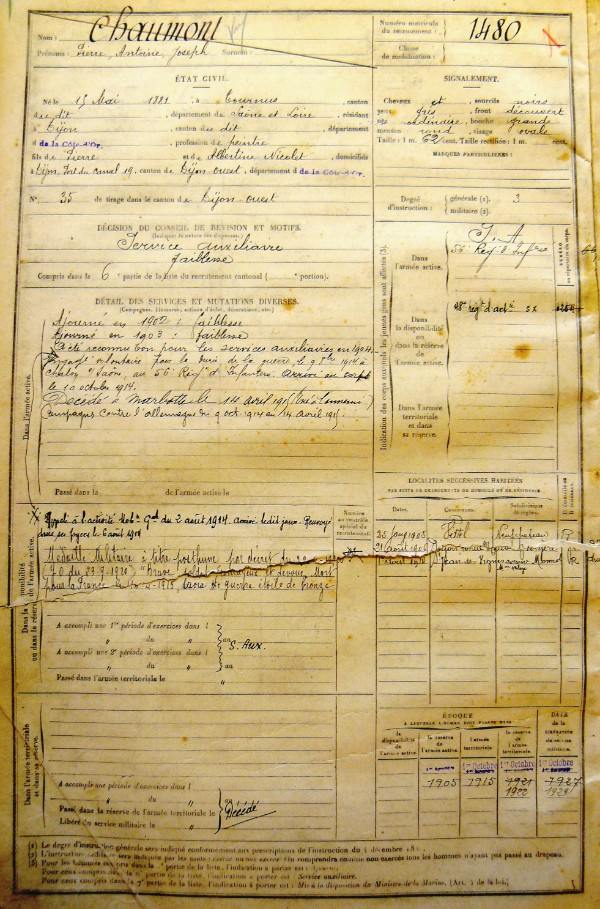 Nom : Chaumont
Prénoms : Pierre, Antoine, Joseph Surnom :
Numéro matricule du recrutement :
1480
Classe de mobilisation :
ÉTAT CIVIL.
Né le 15 Mai 1881, à Tournus, canton
du dit, département de Saône et Loire, résidant
à Dijon, canton des dit, département
d de la Côte-d'Or, profession de peintre
fils de Pierre et de Albertine Nicolet, domiciliés
à Dijon, Port du canal 19, canton de Dijon ouest, département d de la Côte-d'Or.
N° 35 de tirage dans le canton de Dijon-ouest
SIGNALEMENT.
Cheveux et sourcils noirs
yeux gris, front découvert
nez ordinaire, bouche grande
menton rond, visage ovale
Taille : 1 m. 62 cent. Taille rectifiée : 1 m. cent.
MARQUES PARTICULIÈRES :
Degré d'instruction :
générale (1). 3
militaire (2).
DÉCISION DU CONSEIL DE RÉVISION ET MOTIFS.
Service auxiliaire
faiblesse
Compris dans la 6e partie de la liste du recrutement cantonal ( portion).
Indication des corps auxquels les jeunes gens sont affectés (3).
Dans l'armée active.
S. A.
56 Rég. d'Infrie
Dans la disponibilité ou dans la réserve de l'armée active.
Dans l'armée territoriale et dans sa réserve.
DÉTAIL DES SERVICES ET MUTATIONS DIVERSES.
(Campagnes, blessures, actions d'éclat, décorations, etc.)
Dans l'armée active.
Ajourné en 1902 : faiblesse
Ajourné en 1903 : faiblesse
A été reconnu bon pour les services auxiliaires en 1904.
Engagé volontaire pour la durée de la guerre le 9 8bre 1914 à
Chalon s/Saône, au 56e Rég. d'Infanterie. Arrivé au corps
le 10 octobre 1914.
Décédé à Marbotte le 14 avril 1915 (tué à l'ennemi)
Campagnes contre l'allemagne du 9 oct. 1914 au 14 avril 1915.
Passé dans la de l'armée active le
LOCALITÉS SUCCESSIVES HABITÉES
PAR SUITE DE CHANGEMENTS DE DOMICILE OU DE RÉSIDENCE.
Dates. Communes. Subdivision de région.
Neufchâteau
Numéro au contrôle spécial du recrutement.
Rappelé à l'activité Mobon Gale du 2 août 1914. Arrivé ledit jour. Renvoyé
dans ses foyers le 6 août 1914
Médaille Militaire à titre posthume par décret du
(J.O du 23.9.1920) "Brave soldat courageux et dévoué. Mort
pour la France 1915, Croix de guerre étoile de bronze
A accompli une 1re période d'exercices dans l
" du au
S. Aux.
A accompli une 2e période d'exercices dans l
" du au
Passé dans l'armée territoriale le
Dans l'armée territoriale et dans sa réserve.
A accompli une période d'exercices dans l
" du au
Passé dans la réserve de l'armée territoriale le
Libéré du service militaire le
Décédé
ÉPOQUE
À LAQUELLE L'HOMME DOIT PASSER DANS
la disponibilité de l'armée active.
la réserve de l'armée active.
l'armée territoriale.
la réserve de l'armée territoriale.
DATE de la LIBÉRATION du service militaire.
1er Octobre 1er Octobre 1er Octobre
1905 1915 1921 1927
1922 1928
(1) Le degré d'instruction générale sera indiqué conformément aux prescriptions de l'instruction du 4 décembre
Pour ceux compris dans la 6e partie de la liste, l'indication à porter est : Service auxiliaire.
Pour ceux compris dans la 7e partie de la liste, l'indication à porter est : Mis à la disposition du Ministre de la Marine. (Art. de la loi.)